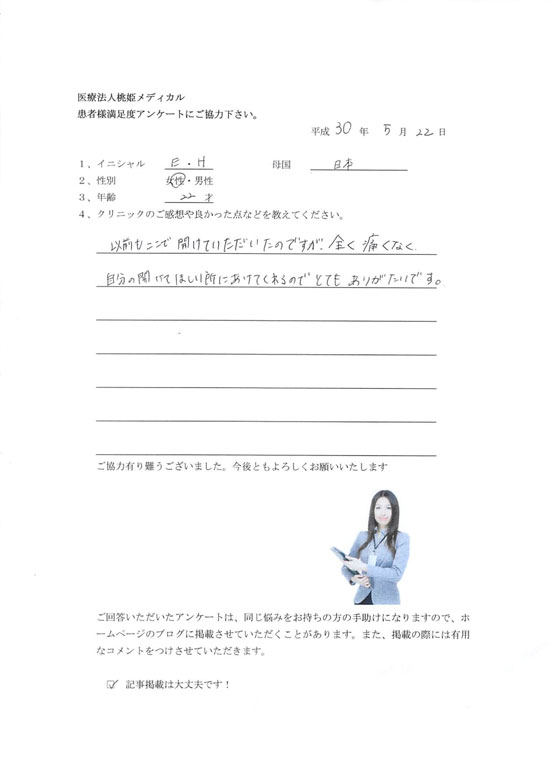 医療法人桃姫メディカル
患者様満足度アンケートにご協力下さい。
平成 30 年 5 月 22 日
1、イニシャル E・H 母国 日本
2、性別 女性・男性
3、年齢 22 才
4、クリニックのご感想や良かった点などを教えてください。
以前もここで開けていただいたのですが、全く痛くなく
自分の開けてほしい所にあけてくれるのでとてもありがたいです。
ご協力有り難うございました。今後ともよろしくお願いいたします
ご回答いただいたアンケートは、同じ悩みをお持ちの方の手助けになりますので、ホ
ームページのブログに掲載させていただくことがあります。また、掲載の際には有用
なコメントをつけさせていただきます。
☑ 記事掲載は大丈夫です！